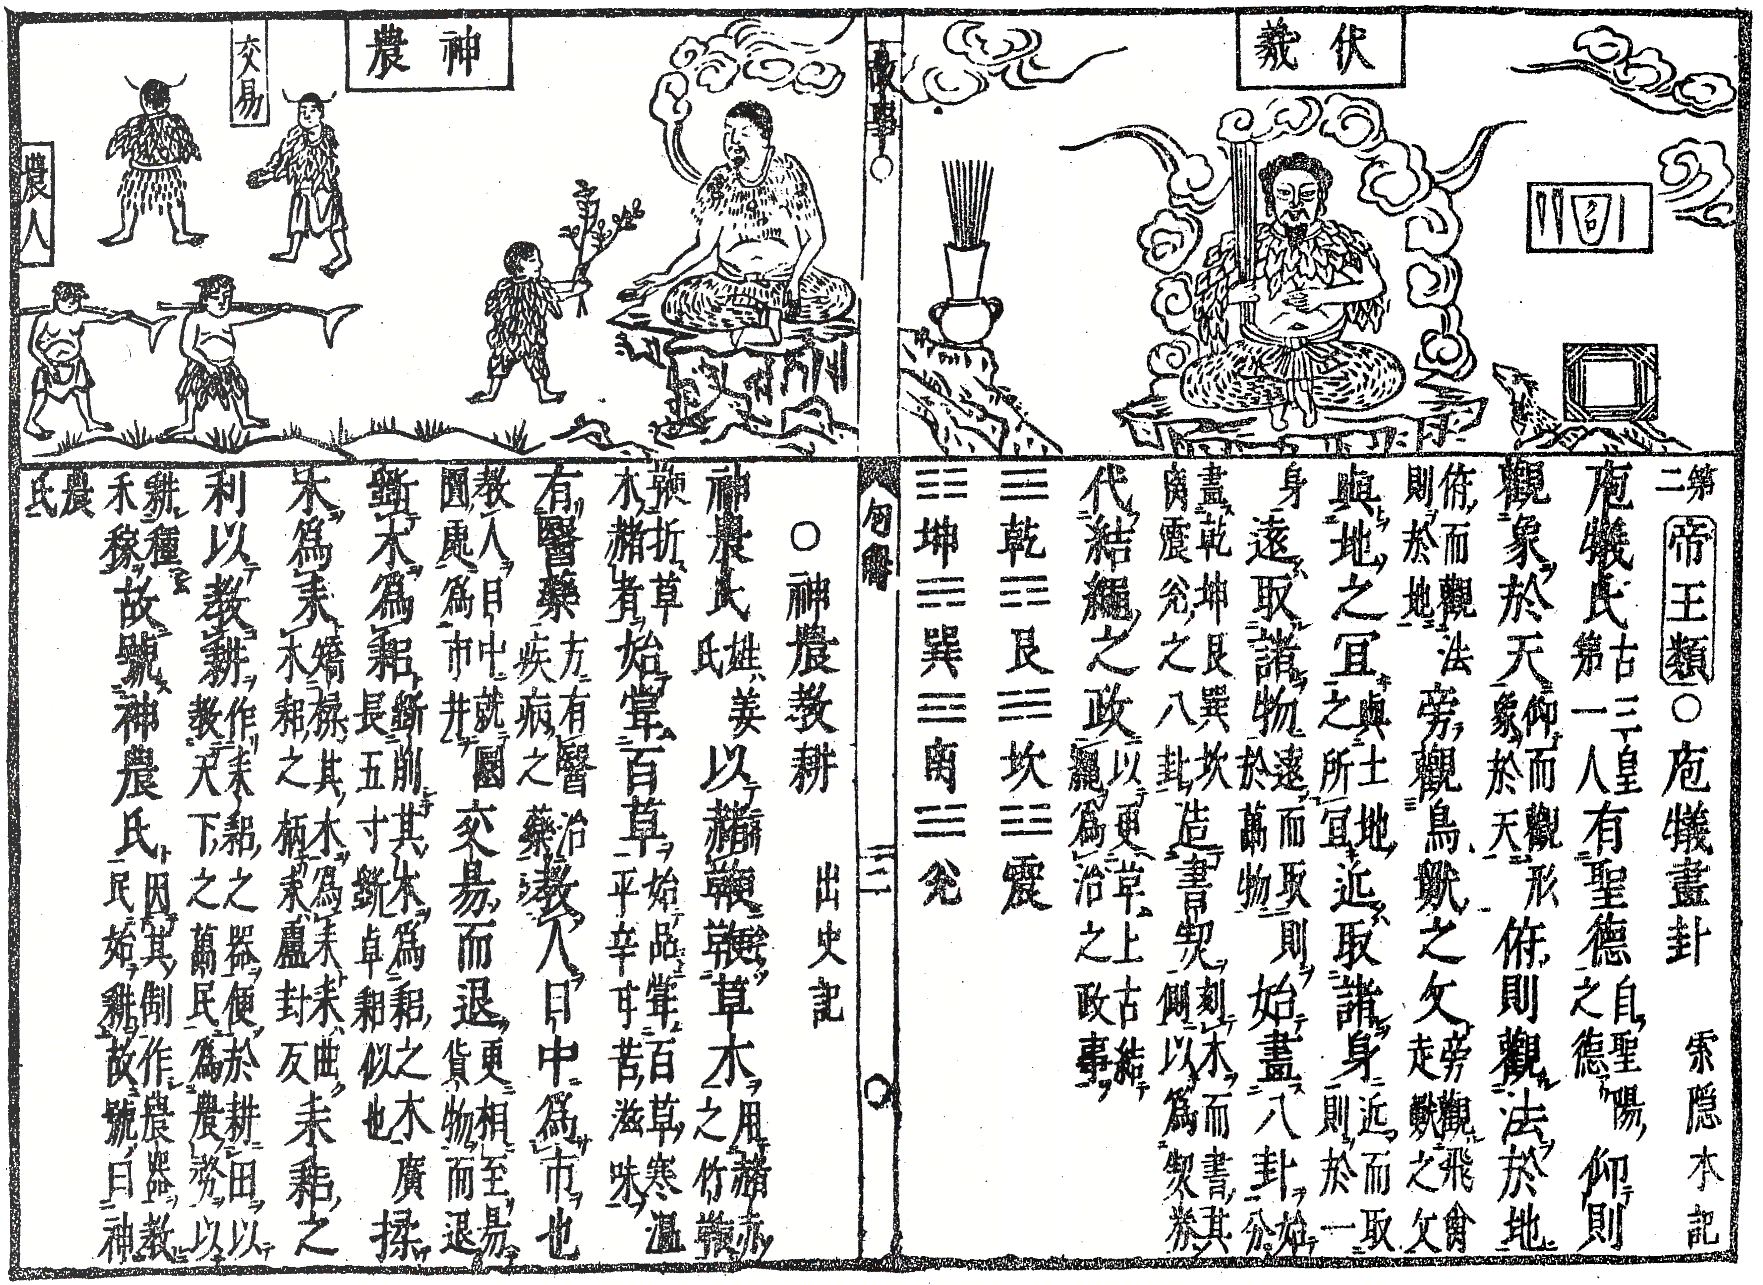 伏羲
第二 帝王類 ○庖犧畫卦 索隱本記
庖犧氏 古三皇第一人 有聖德 自聖陽之德 仰則
觀象於天 仰而觀形象於天 俯則觀法於地
俯而觀法則於地 旁觀鳥獸之文 旁觀飛禽走獸之文
與地之宜 與土地之所宜 近取諸身 近而取則於一
身 遠取諸物 遠而取則於萬物 始畫八卦 始分
畫乾坤艮巽坎离震兊之八卦 造書契 刻木而書其側以爲契券
代結繩之政 以更草上古結繩爲治之政事
☰乾 ☶艮 ☵坎 ☳震
☷坤 ☴巽 ☲离 ☱兊
故事
句解
三
神農
交易
農人
○神農教耕 出史記
神農氏 姓姜氏 以赭鞭鞭草木 用赭赤之竹鞭
鞭折草木赭者 始嘗百草 始品嘗百草寒溫平辛甘苦滋味
有醫藥 方有醫治疾病之藥 教人日中爲市也
教人日中就國圓廛爲市井 交易而退 更相至易貨物而退
斲木爲耜 斲削其木爲耜之木長五寸斲卓耜似也 廣揉
木爲耒 矯揉其木爲耒耒曲木耜之柄耒盧封反 耒耜之
利以教耕 作耒耜之器便於耕田以教天下之萬民爲農務以
耕種禾稼 故號神農氏 因其制作農器教民始耕故號曰神
農氏